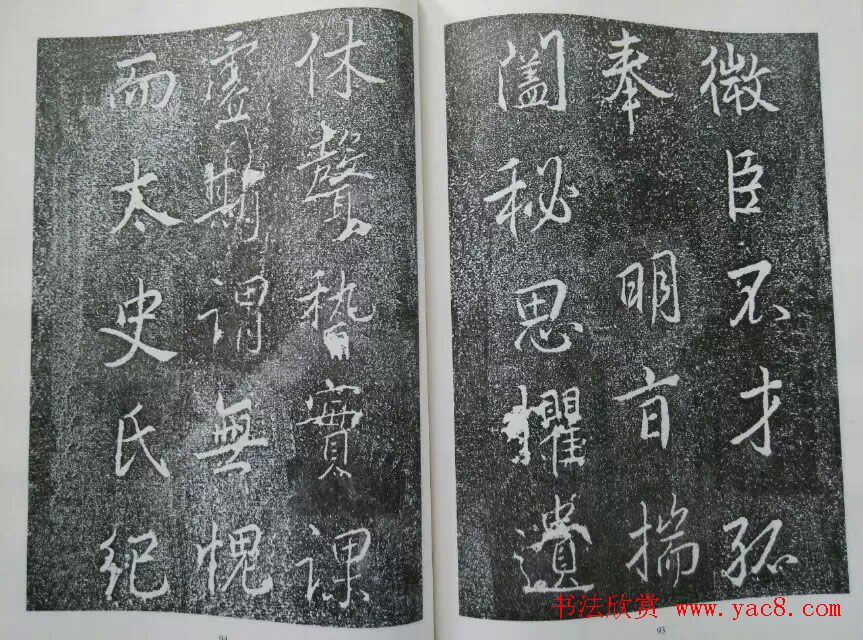 微臣不才孤
奉明旨揣
闔秘思懼遺
休聲稽實課
虛斯謂無愧
而太史氏紀
93
94
书法欣赏 www.yac8.com